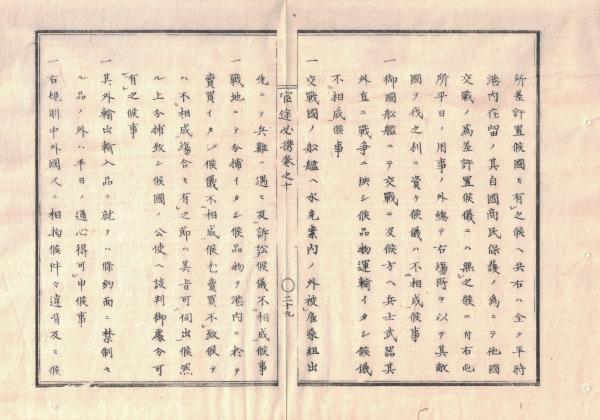 所差許置候國モ有之候ヘ共右ハ全ク平時
港内在留ノ其自國商民保護ノ為ニテ他國
交戰ノ為差許置候儀ニハ無之候ニ付右地
所平日ノ用事ノ外總テ右場所ヲ以テ其敵
國ヲ伐之利ニ資ケ候儀ハ不相成候事
一御國船艦ニテ交戰ニ及候方ヘ兵士武器其
外直ニ戰爭ニ拱シ候品物運輸イタシ候儀
不相成候事
一交戰國ノ船艦ヘ水先案内ノ外被雇乘組出
官途必携巻之十
〇二十九
先ニテ兵難ニ遇ヒ及訴訟候儀不相成候事
一戰地ニテ分捕イタシ候品物ヲ港内ニ於テ
賣買イタシ候儀不相成候尤賣買不致候テ
ハ不相成場合モ有之節ハ其旨可伺出候然
ル上分捕致シ候國ノ公使ヘ談判御處分可
有之候事
一其外輸出輸入品ニ就テハ條約面ニ禁制セ
ル品ノ外ハ平日ノ通心得可申候事
一右規則中外國人ニ相拘候件々違背及ヒ候